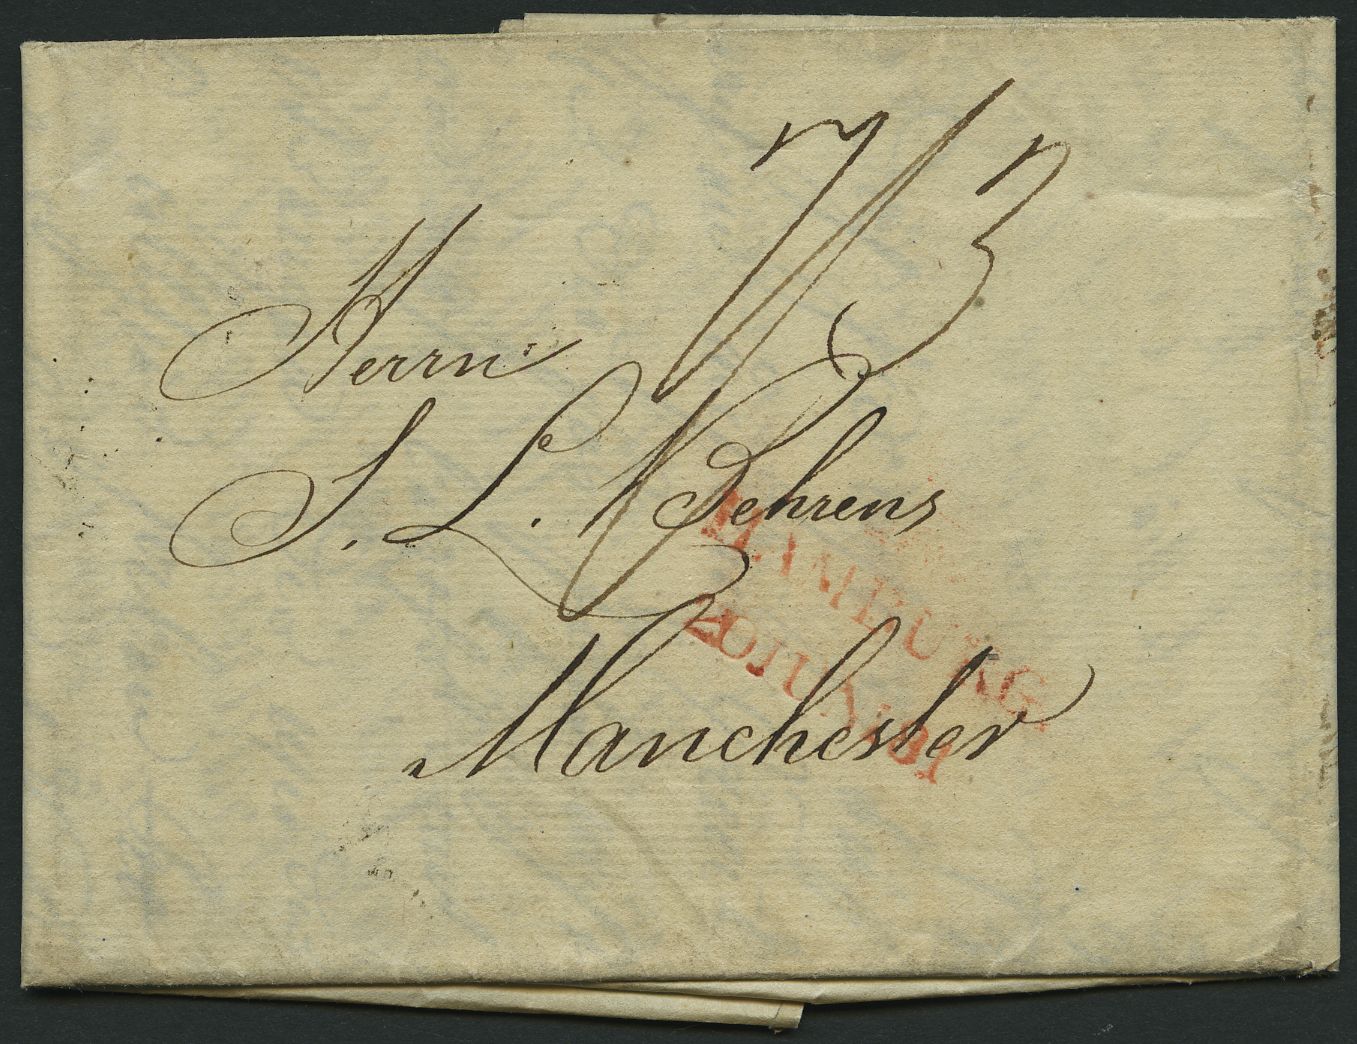 7/3
Herrn
S. L. Behrens
Manchester
HAMBURG.
20 JUN